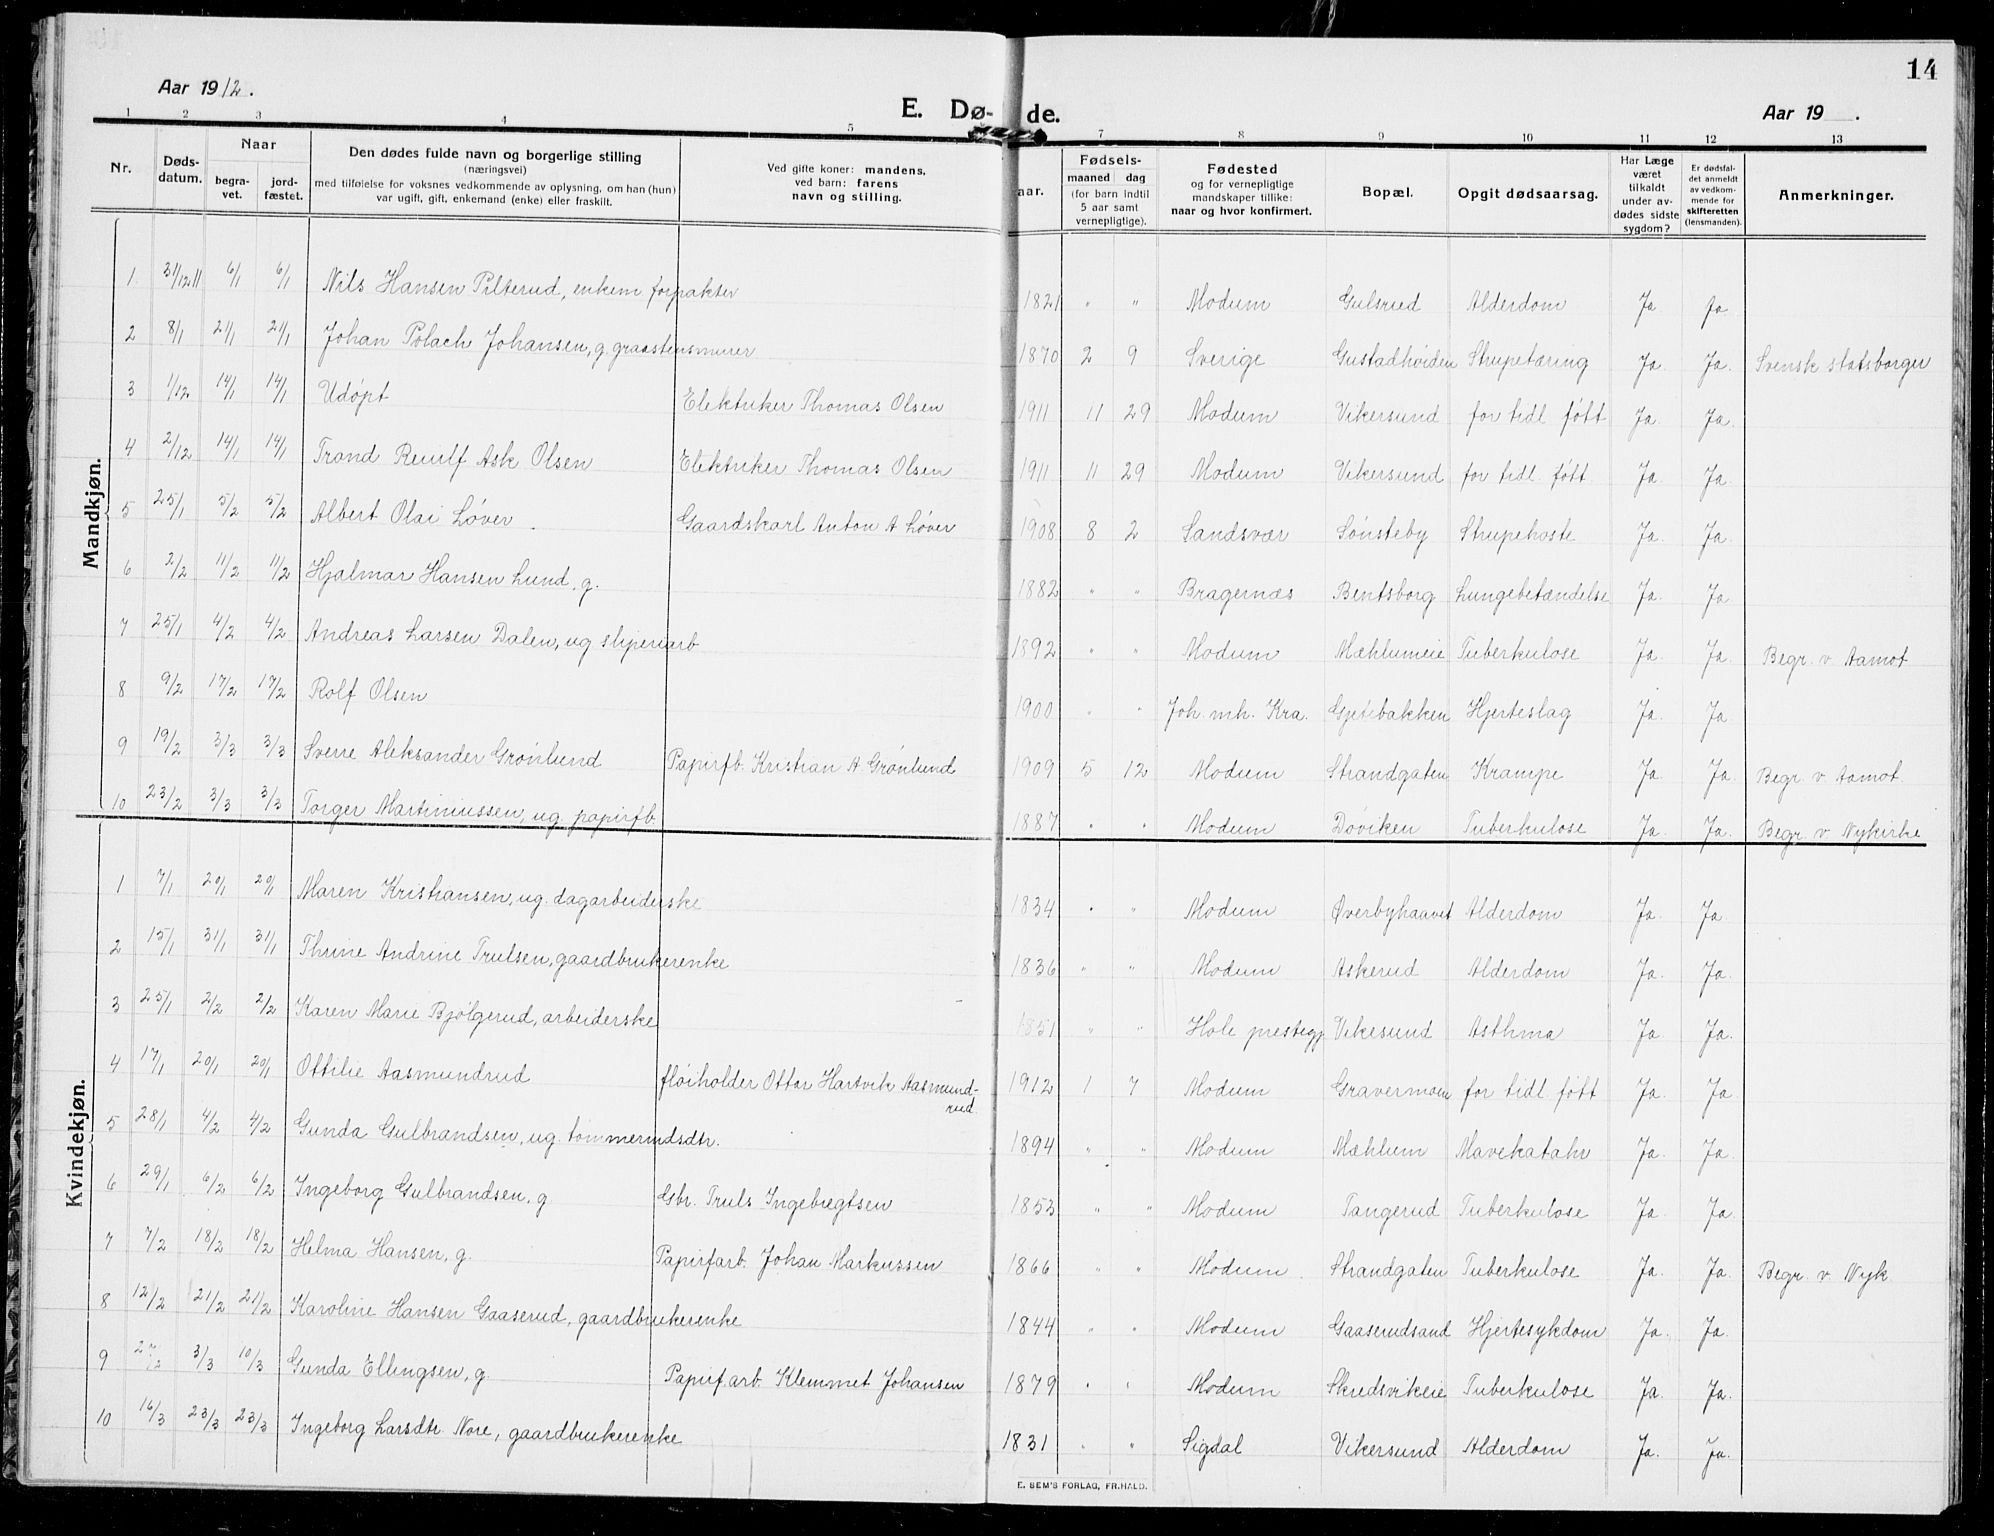 Aar 1912.
E. Dø- de.
14
Aar 19 .
1 2 3 4 5 7 8 9 10 11 12 13
Nr. Døds-datum. Naar begra-vet. jord-fæstet. Den dødes fulde navn og borgerlige stilling (næringsvei) med tilføielse for voksnes vedkommende av oplysning, om han (hun) var ugift, gift, enkemand (enke) eller fraskilt. Ved gifte koner: mandens, ved barn: farens navn og stilling. aar. Fødsels- maaned dag (for barn indtil 5 aar samt vernepligtige). Fødested og for vernepligtige mandskaper tillike: naar og hvor konfirmert. Bopæl. Opgit dødsaarsag. Har Læge været tilkaldt under av-dødes sidste sygdom? Er dødsfal-det anmeldt av vedkom-mende for skifteretten (lensmanden). Anmerkninger.
Mandkjøn.
1 31/12 11 6/1 6/1 Nils Hansen Pilterud, enkem forpakter 1821 " " Modum Gulsrud Alderdom Ja Ja
2 8/1 21/1 21/1 Johan Polach Johansen, g. graastensmurer 1870 2 9 Sverige Gustadhviden Strupetæring Ja. Ja. Svensk statsborger
3 1/12 14/1 14/1 Udøpt Elektriker Thomas Olsen 1911 11 29 Modum Vikersund for tidl født Ja. Ja.
4 2/12 14/1 14/1 Trond Ask Olsen Elektriker Thomas Olsen 1911 11 29 Modum Vikersund for tidl. født Ja. Ja.
5 25/1 5/2 5/2 Albert Olai Løver Gaardskarl Anton A Løver 1908 8 2 Sandsvær Sønsteby Strupehoste Ja. Ja.
6 2/2 11/2 11/2 Hjalmar Hansen Lund, g. 1882 " " Bragernæs Bentsborg Lungebetændelse Ja. Ja
7 25/1 4/2 4/2 Andreas Larsen Dalen, ug sliperiarb 1892 " " Modum Mæhlumeie Tuberkulose Ja. Ja. Begr. v. Aamot
8 9/2 17/2 17/2 Rolf Olsen 1900 " " Joh. mh. Kra. Hjerteslag Ja. Ja
9 19/2 3/3 3/3 Sverre Aleksander Grønlund Papirfb. Kristian A. Grønlund 1909 5 12 Modum Strandgaten Krampe Ja. Ja. Begr. v. Aamot
10 23/2 3/3 3/3 Torger Martiniussen, ug. papirfb 1887 " " Modum Døviken Tuberkulose Ja. Ja. Begr. v. Nykirke
Kvindekjøn.
1 7/1 20/1 20/1 Maren Kristiansen, ug. dagarbeiderske 1834 " " Modum Øverbyhaavet Alderdom Ja. Ja
2 15/1 31/1 31/1 Thrine Andrine Trulsen, gaardbrukerenke 1836 " " Modum Askerud Alderdom Ja. Ja.
3 25/1 2/2 2/2 Karen Marie Bjølgerud, arbeiderske 1851 " " Hole prestegj Vikesund Asthma Ja. Ja.
4 17/1 20/1 20/1 Ottilie Aasmundrud fløiholder Ottar Hartvik Aasmund-
rud 1912 1 7 Modum Gravermoen for tidl født Ja. Ja.
5 28/1 4/2 4/2 Gunda Gulbrandsen, ug. tømmermdsdtr. 1894 " " Modum Mæhlum Mavekatahr Ja. Ja.
6 29/1 6/2 6/2 Ingeborg Gulbrandsen, g Gbr. Truls Ingebregtsen 1853 " " Modum Tangerud Tuberkulose Ja. Ja.
7 7/2 18/2 18/2 Helma Hansen, g. Papirfarb. Johan Markussen 1866 " " Modum Strandgaten Tuberkulose Ja. Ja. Begr. v. Nyk.
8 12/2 21/2 21/2 Karoline Hansen Gaaserud, gaardbrukerenke 1844 " " Modum Gaaserudsand Hjertesykdom Ja. Ja.
9 3/3 10/3 Gunda Ellingsen, g. Papirf.arb. Klemmet Johansen 1879 " " Modum Skredsvikeie Tuberkulose Ja. Ja.
10 16/3 23/3 23/3 Ingeborg Larsdtr. Nore, gaardbrukerenke 1831 " " Sigdal Vikersund Alderdom Ja. Ja.
E. SEM'S FORLAG, FR.HALD.